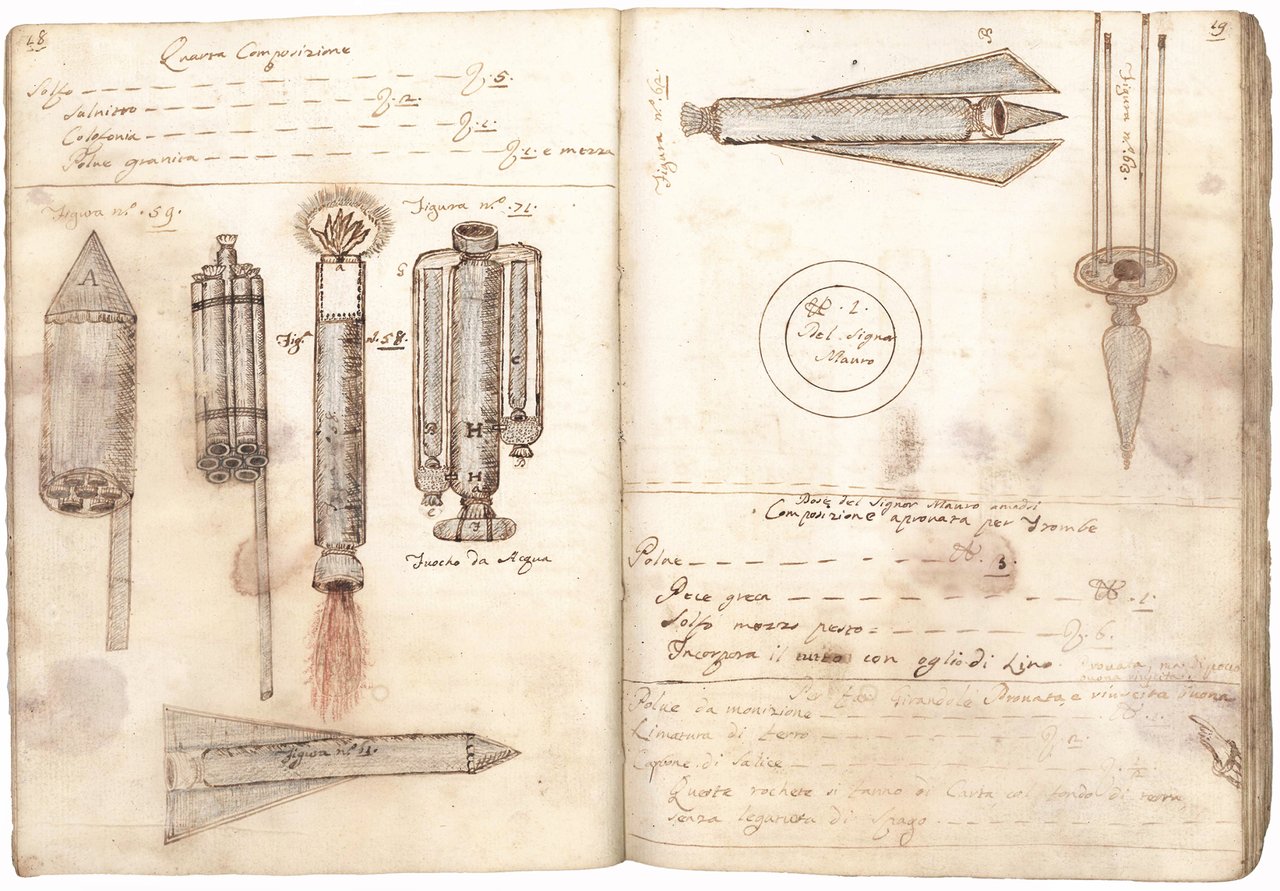 18
Quarta Composizione
Solfo ℥. 5.
Salnitro ℥. 2.
Colofonia ℥. 1.
Polue granita ℥. 1. e mezza
Figura n.º 59.
A
A
Fig.ª n.º 58.
Figura n.º 71.
G
B
C
C
D
H
H
I
Fuocho da Acqua
Figura n.º 11.
19
Figura n.º 62
B
Figura n.º 63.
℔. 1.
Del Signor
Mauro
Dose del Signor Mauro amadri
Composizione aprouata per Trombe
Polue ℔ 3
Pece greca ℔. 1.
Solfo mezzo pesto ℥. 6
Incorpora il tutto con oglio di Lino. Prouata, ma di poca
buona riuscita.
Per far Girandole Prouata, e riuscita buona
Polue da monizione ℔. 1.
Limatura di ferro ℥. 2.
Carbone di Salice
Queste rochete si fanno di Carta col fondo di terra
senza legatura di Spago.